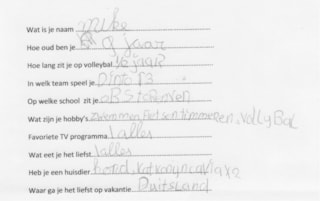 Wat is je naam Mike
Hoe oud ben je 9 jaar
Hoe lang zit je op volleybal jaar
In welk team speel je
Op welke school zit je OBS
Wat zijn je hobby's zwommen fietsen timmeren, vollyBal
Favoriete TV programma alles
Wat eet je het liefst alles
Heb je een huisdier hond, kat
Waar ga je het liefst op vakantie Duitsland